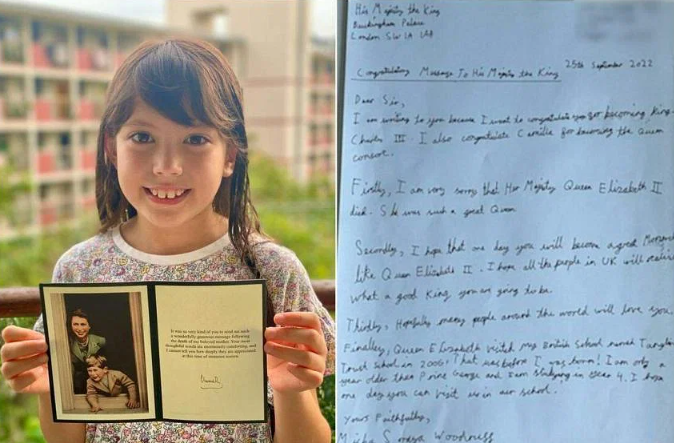 It was so very kind of you to send me such
a wonderfully generous message following
the death of my beloved mother. Your most
thoughtful words are enormously comforting, and
I cannot tell you how deeply they are appreciated
at this time of immense sorrow.
His Majesty the King
Buckingham Palace
London SW1A 1AA
25th September 2022
Congratulations Message To His Majesty the King
Dear Sir,
I am writing to you because I want to congratulate you for becoming King
Charles III. I also congratulate Camilla for becoming the Queen
consort.
Firstly, I am very sorry that Her Majesty Queen Elizabeth II
died. She was such a great Queen
Secondly, I hope that one day you will become a great
like Queen Elizabeth II. I hope all the people in UK will
What a good King you are going to be.
Thirdly, Hopefully many people around the world will love you.
Finally, Queen Elizabeth visited my British School named
Trust School in 2006! That was before I was born! I am only a
year older then Prince George and I am studying in Year 4. I hope
one day you can visit us in our school.
Yours Faithfully,